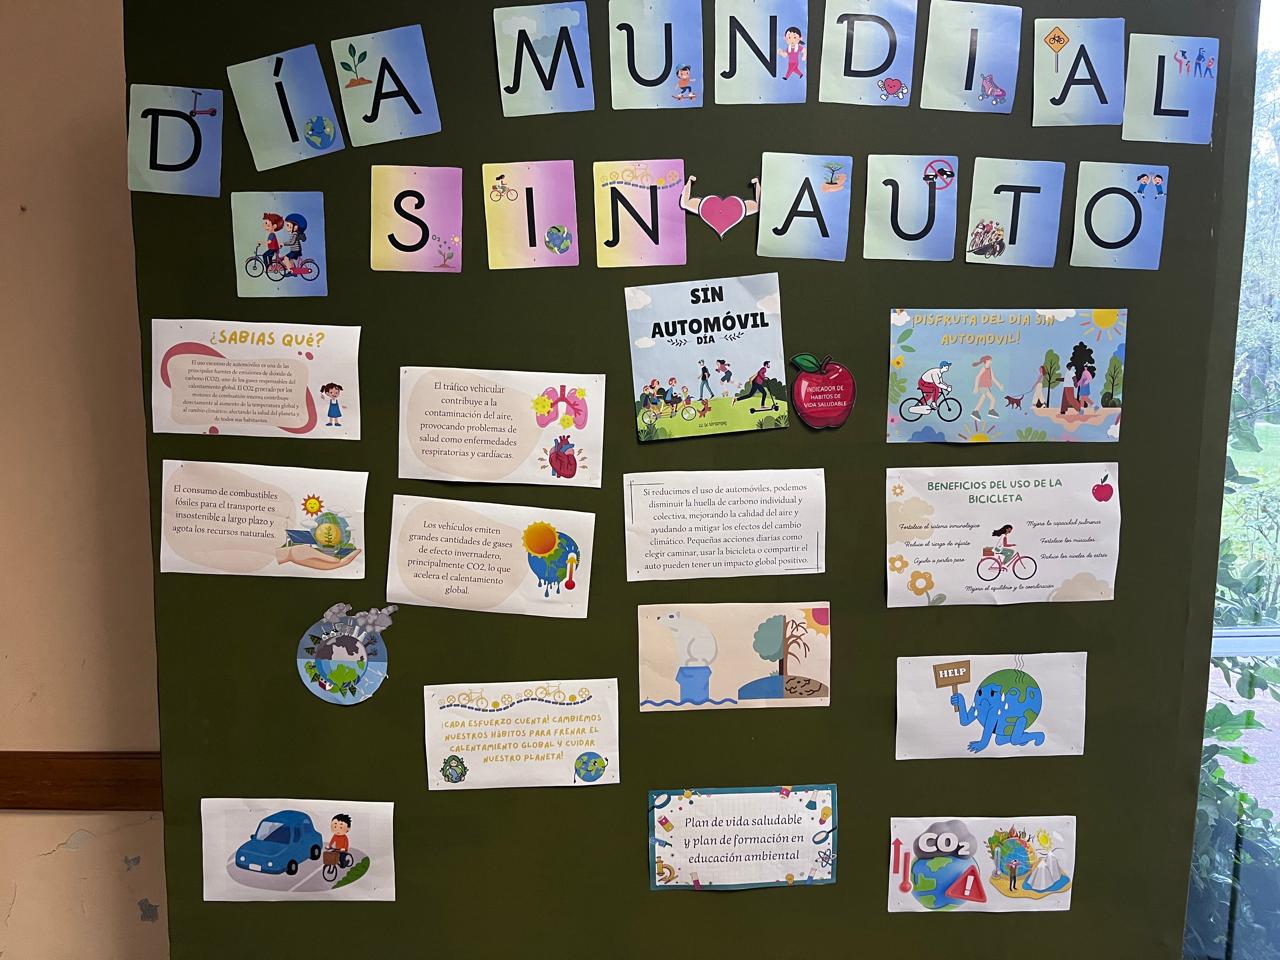 DÍA MUNDIAL
SIN AUTO
¿SABIAS QUé?
El uso excesivo de automóviles es una de las
principales fuentes de emisiones de dióxido de
carbono (CO2), uno de los gases responsables del
calentamiento global. El CO2 generado por los
motores de combustión interna contribuye
directamente al aumento de la temperatura global y
al cambio climático, afectando la salud del planeta y
de todos sus habitantes.
El tráfico vehicular
contribuye a la
contaminación del aire,
provocando problemas de
salud como enfermedades
respiratorias y cardíacas.
SIN
AUTOMÓVIL
DÍA
22 DE SEPTIEMBRE
INDICADOR DE
HABITOS DE
VIDA SALUDABLE
¡DISFRUTA DEL DÍA SIN
AUTOMOVIL!
El consumo de combustibles
fósiles para el transporte es
insostenible a largo plazo y
agota los recursos naturales.
Los vehículos emiten
grandes cantidades de gases
de efecto invernadero,
principalmente CO2, lo que
acelera el calentamiento
global.
Si reducimos el uso de automóviles, podemos
disminuir la huella de carbono individual y
colectiva, mejorando la calidad del aire y
ayudando a mitigar los efectos del cambio
climático. Pequeñas acciones diarias como
elegir caminar, usar la bicicleta o compartir el
auto pueden tener un impacto global positivo.
BENEFICIOS DEL USO DE LA
BICICLETA
Fortalece el sistema inmunológico
Reduce el riesgo de infarto
Ayuda a perder peso
Mejora la capacidad pulmonar
Fortalece los músculos
Reduce los niveles de estrés
Mejora el equilibrio y la coordinación
HELP
¡CADA ESFUERZO CUENTA! CAMBIEMOS
NUESTROS HÁBITOS PARA FRENAR EL
CALENTAMIENTO GLOBAL Y CUIDAR
NUESTRO PLANETA!
Plan de vida saludable
y plan de formación en
educación ambiental
CO2